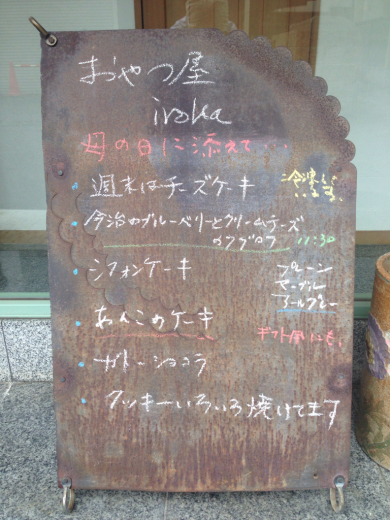 おやつ屋
iroha
母の日に添えて...
週末はチーズケーキ
今治のブルーベリーとクリームチーズ
のフグロフ 11:30
シフォンケーキ
プレーン
マーブル
アールグレー
あんこのケーキ
ギフト用にも、
ガトーショコラ
クッキーいろいろ焼けてます